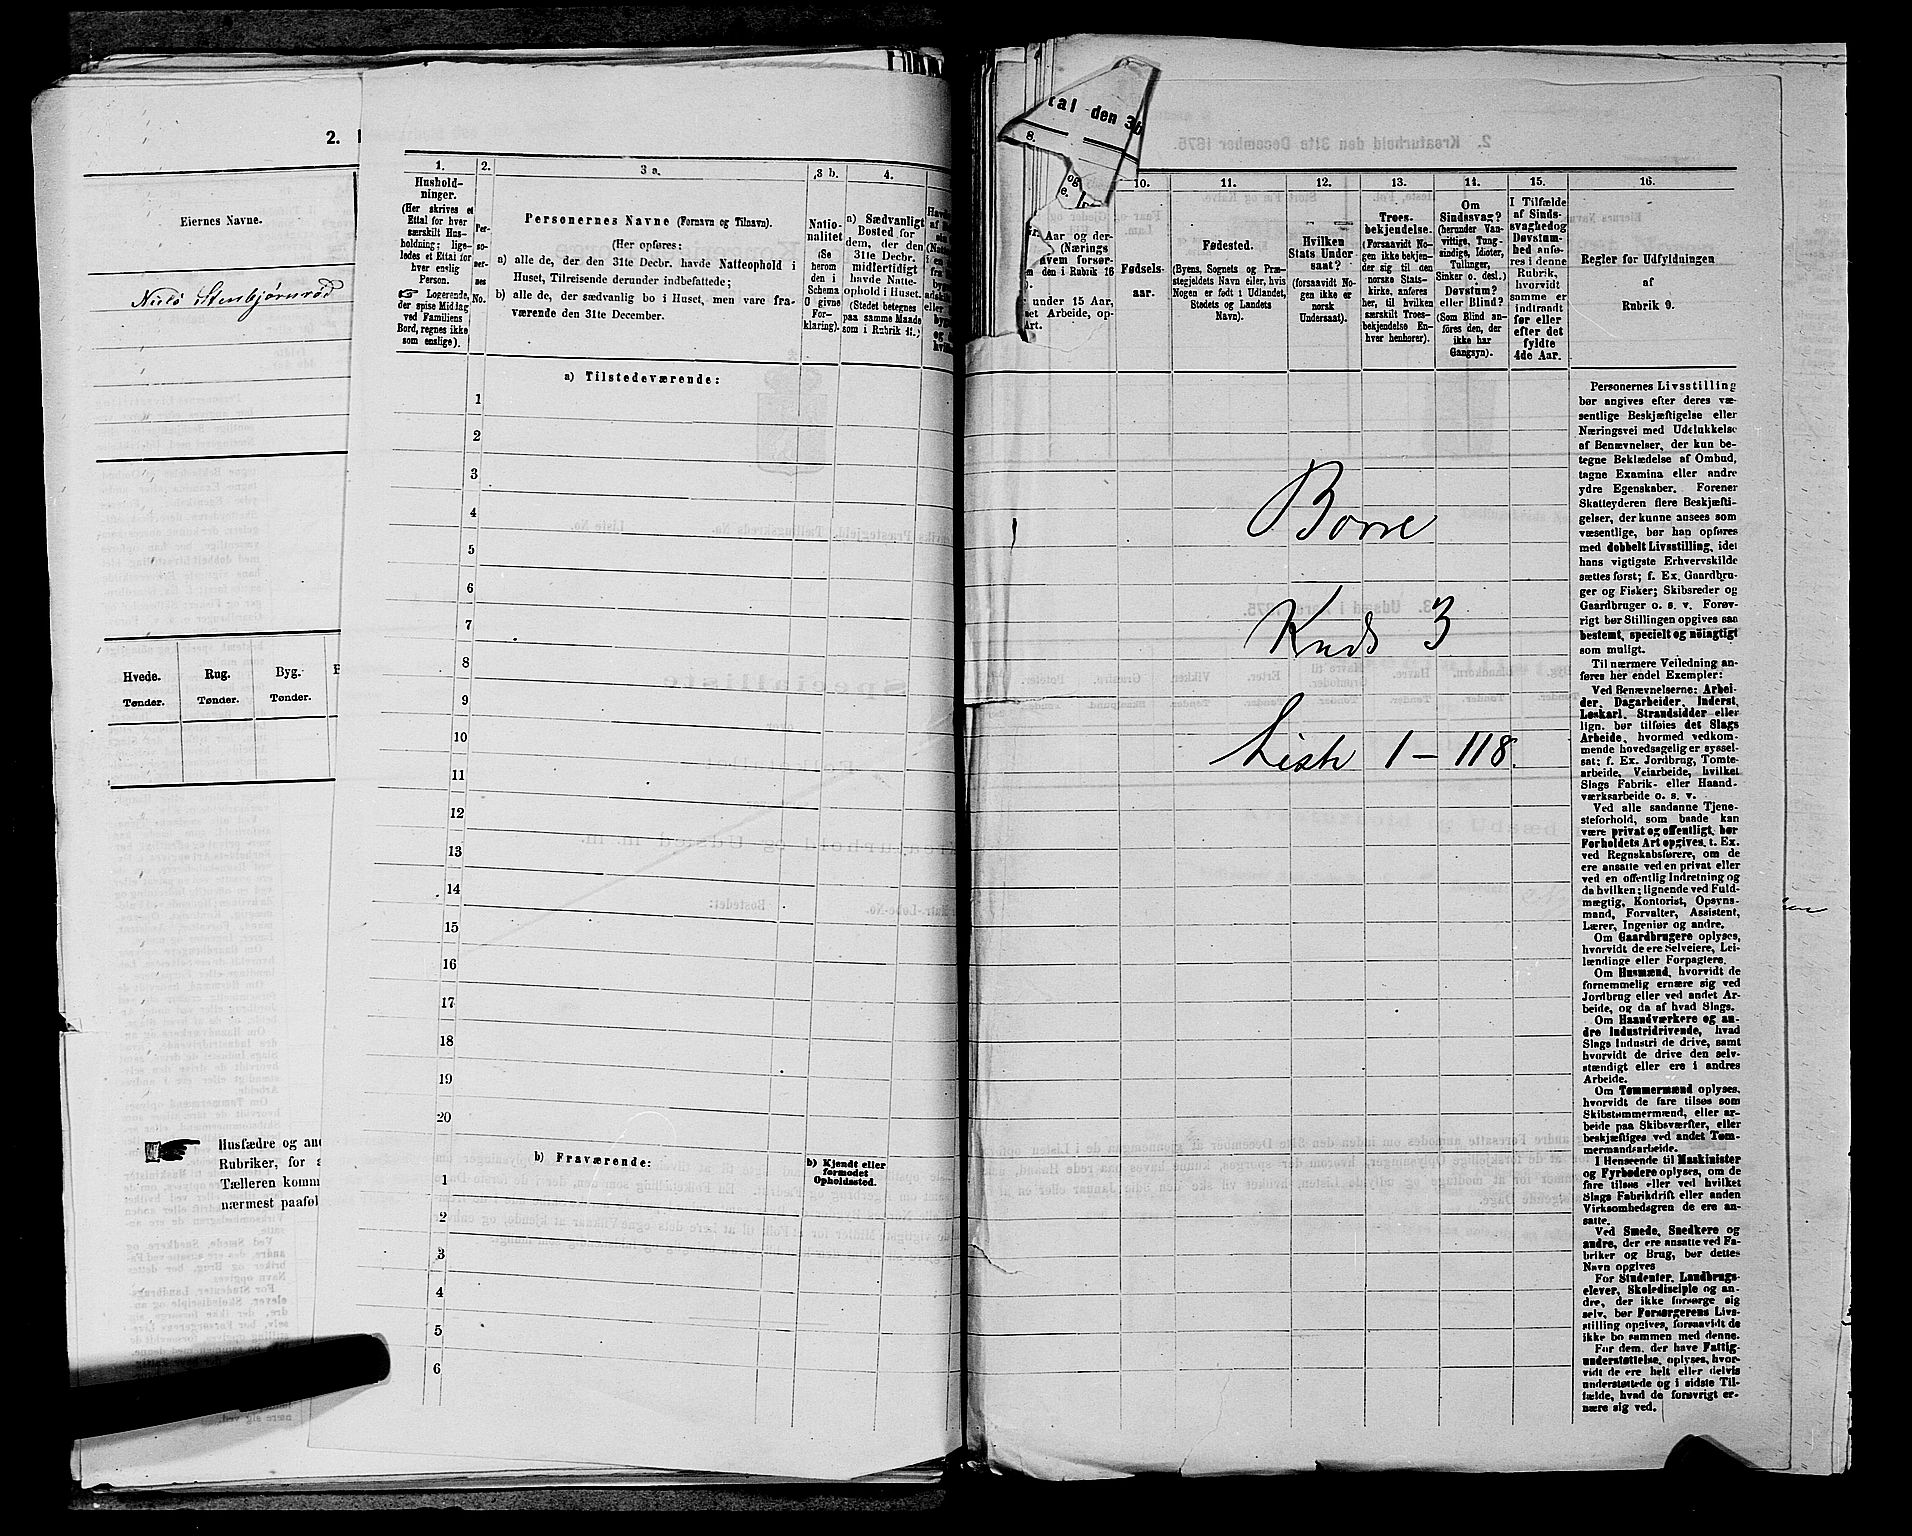 2.
Eiernes Navne.
Hvede.
Rug.
Byg.
Tønder.
Tønder.
Tønder.
Husfædre og
Rubriker, for
Tælleren
nærmest
1.
2.
3 a.
3 b.
4.
Hushold-
ninger.
(Her skrives et
Ettal for hver
særskilt Hus-
holdning; lige-
ledes et Ettal for
hver enslig
Person.
Logerende,
der spise Middag
ved Familiens
Bord, regnes ikke
som enslige).
Per-
so-
ner-
nes
No.
Personernes Navne (Fornavn og Tilnavn).
(Her opføres:
a) alle de, der den 31te Decbr. havde Natteophold i
Huset, Tilreisende derunder indbefattede;
b) alle de, der sædvanlig bo i Huset, men vare fra-
værende den 31te December.
Natio-
nalitet
(Se
herom
den i
Schema
O givne
For-
klaring).
a) Sædvanligt
Bosted for
dem, der den
31te Decbr.
midlertidigt
havde Natte-
ophold i Huset.
(Stedet betegnes
paa samme Maade
som i Rubrik 11.)
a) Tilstedeværende:
1
2
3
4
5
6
7
8
9
10
11
12
13
14
15
16
17
18
19
20
b) Fraværende:
b) Kjendt eller
formodet
Opholdssted.
1
2
3
4
5
6
tal den
8.
10.
11.
12.
13.
14.
15.
16.
Aar og der-
(Nærings
hvem forsør-
den i Rubrik 16
under 15 Aar,
Arbeide, op-
Art.
Fødsels-
aar.
Fødested.
(Byens, Sognets og Præ-
stegjeldets Navn eller, hvis
Nogen er født i Udlandet,
Stedets og Landets
Navn).
Hvilken
Stats Under
saat?
(forsaavidt No-
gen ikke er
norsk
Undersaat).
Troes-
bekjendelse.
(Forsaavidt No-
gen ikke bekjen-
der sig til den
norske Stats-
kirke, anføres
her, til hvilken
særskilt Troes-
bekjendelse En-
hver henhører).
Om
Sindssvag?
(herunder Van-
vittige, Tung-
sindige, Idioter,
Tullinger,
Sinker o. desl.)
Døvstum?
eller Blind?
(Som Blind an-
føres den, der
ikke har
Gangsyn).
I Tilfælde
af Sinds-
svaghed og
Døvstum-
hed anfø-
res i denne
Rubrik,
hvorvidt
samme er
indtraadt
før eller
efter det
fyldte
4de Aar.
Regler for Udfyldningen
af
Rubrik 9.
Borre
Kreds 3
Liste 1 – 118.
Personernes Livsstilling
bør angives efter deres væ-
sentlige Beskjæftigelse eller
Næringsvei med Udelukkelse
af Benævnelser, der kun be-
tegne Beklædelse af Ombud,
tagne Examina eller andre
ydre Egenskaber. Forener
Skatteyderen flere Beskjæfti-
gelser, der kunne ansees som
væsentlige, bør han opføres
med dobbelt Livsstilling, idet
hans vigtigste Erhvervskilde
sættes først; f. Ex. Gaardbru-
ger og Fisker; Skibsreder og
Gaardbruger o. s. v. Forøv-
rigt bør Stillingen opgives saa
bestemt, specielt og nöiagtigt
som muligt.
Til nærmere Veiledning an-
føres her endel Exempler:
Ved Benævnelserne: Arbei-
der, Dagarbeider, Inderst,
Løskarl, Strandsidder eller
lign. bør tilføies det Slags
Arbeide, hvormed vedkom-
mende hovedsagelig er syssel-
sat; f. Ex. Jordbrug, Tomte-
arbeide, Veiarbeide, hvilket
Slags Fabrik- eller Haand-
værksarbeide o. s. v.
Ved alle saadanne Tjene-
steforhold, som baade kan
være privat og offentligt, bør
Forholdets Art opgives, t. Ex.
ved Regnskabsførere, om de
ere ansatte ved en privat eller
ved en offentlig Indretning og
da hvilken; lignende ved Fuld-
mægtig, Kontorist, Opsyns-
mand, Forvalter, Assistent,
Lærer, Ingeniør og andre.
Om Gaardbrugere oplyses,
hvorvidt de ere Selveiere, Lei-
lændinge eller Forpagtere.
Om Husmænd, hvorvidt de
fornemmelig ernære sig ved
Jordbrug eller ved andet Ar-
beide, og da af hvad Slags.
Om Haandværkere og an-
dre Industridrivende, hvad
Slags Industri de drive, samt
hvorvidt de drive den selv-
stændigt eller ere i andres
Arbeide.
Om Tømmermænd oplyses,
hvorvidt de fare tilsøs som
Skibstømmermænd, eller ar-
beide paa Skibsværfter, eller
beskjæftiges ved andet Tøm-
mermandsarbeide.
I Henseende til Maskinister
og Fyrbødere oplyses, om de
fare tilsøs eller ved hvilket
Slags Fabrikdrift eller anden
Virksomhedsgren de ere an-
satte.
Ved Smede, Snedkere og
andre, der ere ansatte ved Fa-
briker og Brug, bør dettes
Navn opgives
For Studenter, Landbrugs-
elever, Skoledisciple og an-
dre, der ikke forsørge sig
selv, bør Forsørgerens Livs-
stilling opgives, forsaavidt de
ikke bo sammen med denne.
For dem, der have Fattig-
understøttelse, oplyses, hvor-
vidt de ere helt eller delvis
understøttede og i sidste Til-
fælde, hvad de forøvrigt er-
nære sig ved.